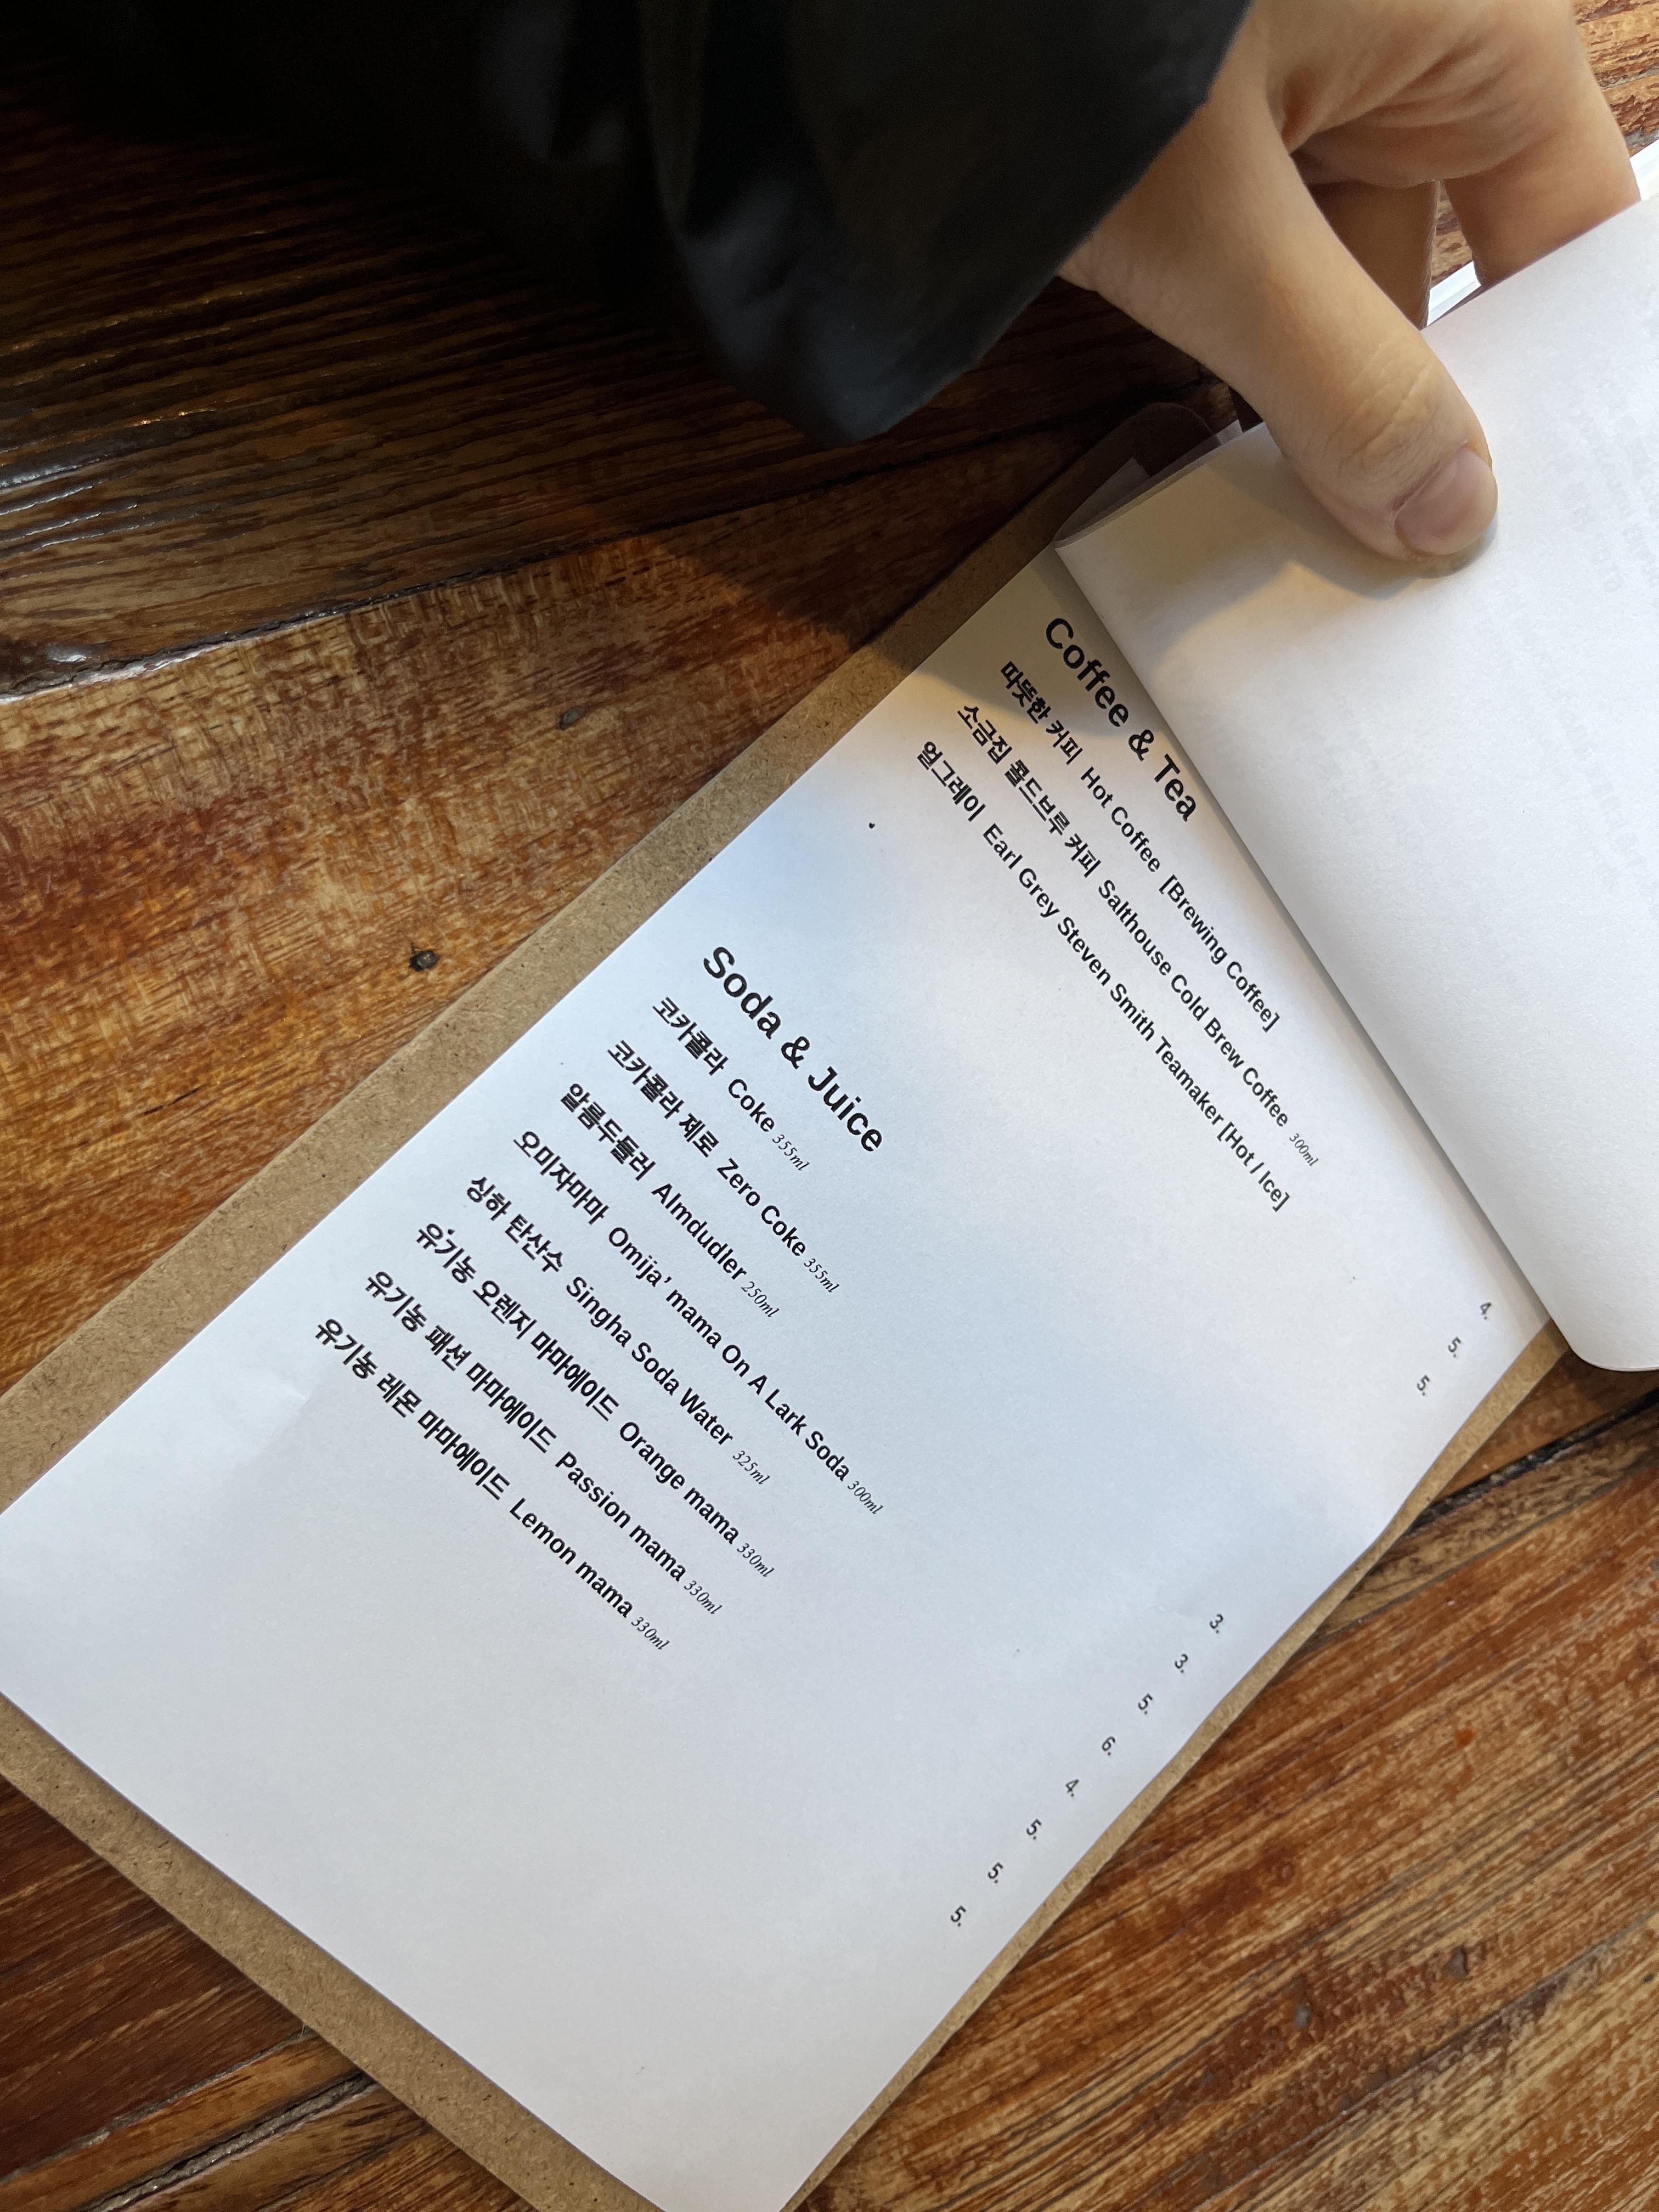 Coffee & Tea
따뜻한 커피 Hot Coffee [Brewing Coffee] 4.
소금집 콜드브루 커피 Salthouse Cold Brew Coffee 300ml 5.
얼그레이 Earl Grey Steven Smith Teamaker [Hot / Ice] 5.
Soda & Juice
코카콜라 Coke 355ml 3.
코카콜라 제로 Zero Coke 355ml 3.
알름두들러 Almdudler 250ml 5.
오미자마마 Omija' mama On A Lark Soda 300ml 6.
싱하 탄산수 Singha Soda Water 325ml 4.
유기농 오렌지 마마에이드 Orange mama 330ml 5.
유기농 패션 마마에이드 Passion mama 330ml 5.
유기농 레몬 마마에이드 Lemon mama 330ml 5.